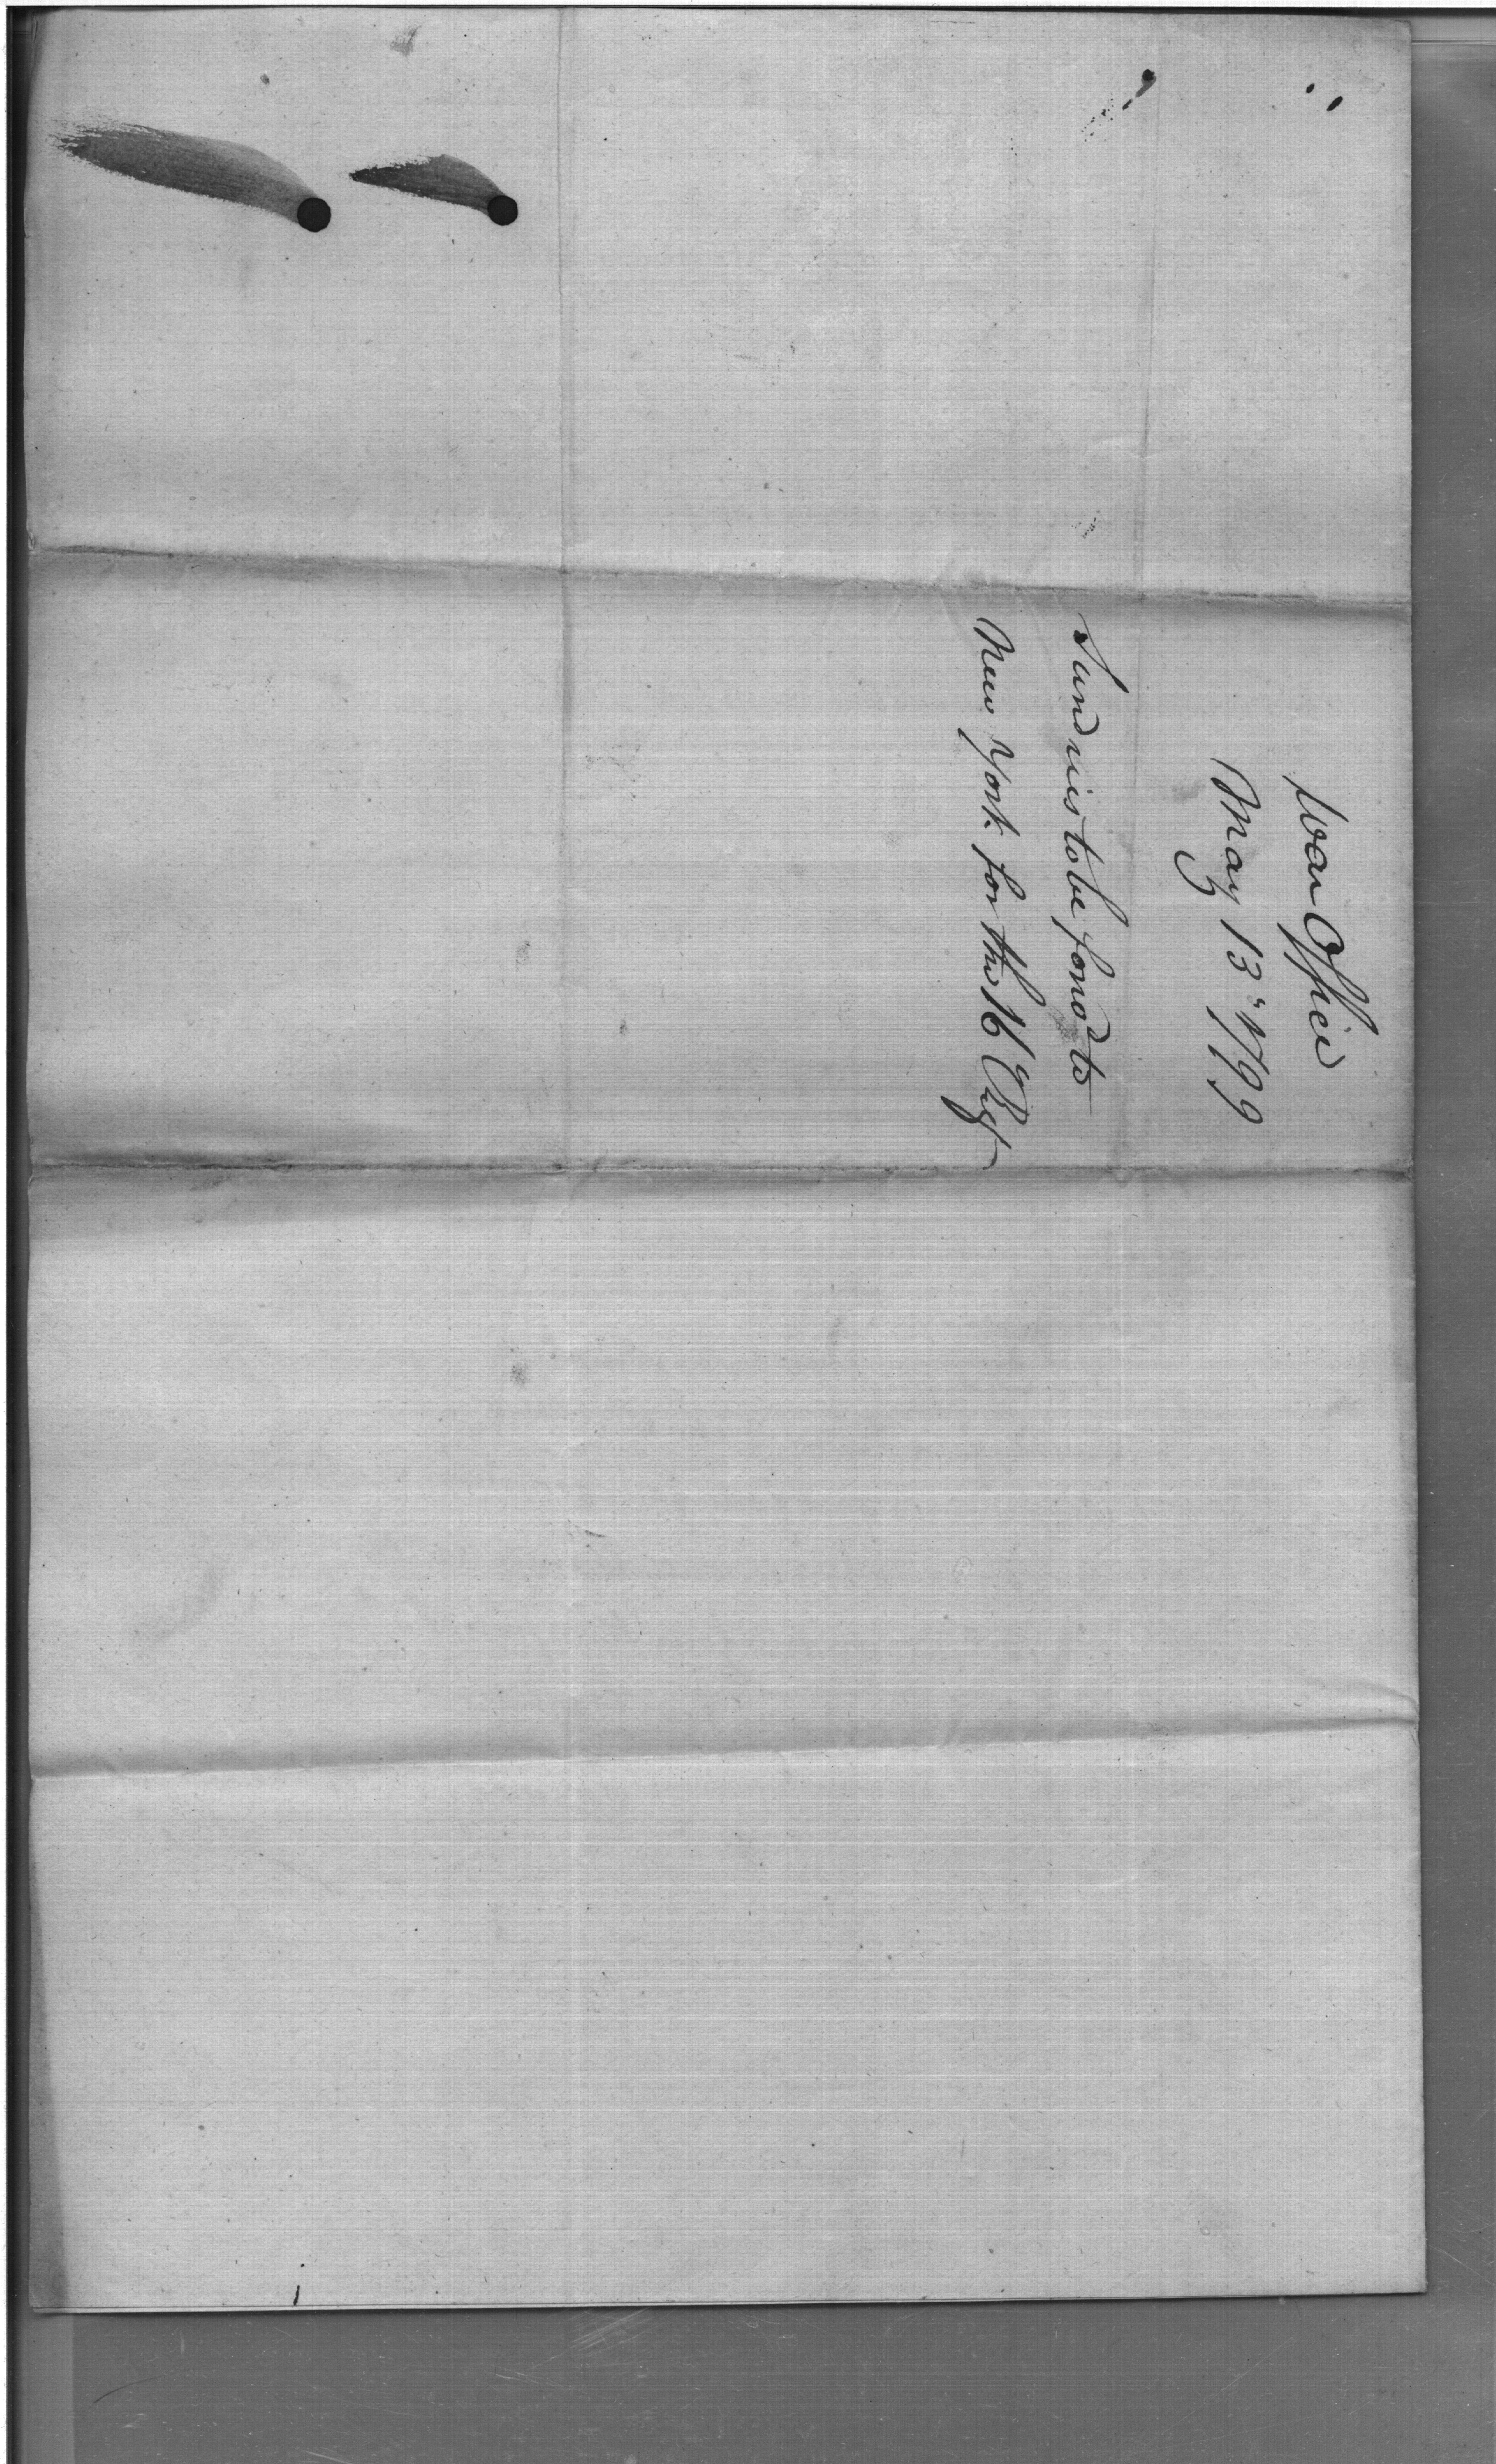 War Office
May 13th 1799
Sundries to be forwd to
New York for the 16 Regt